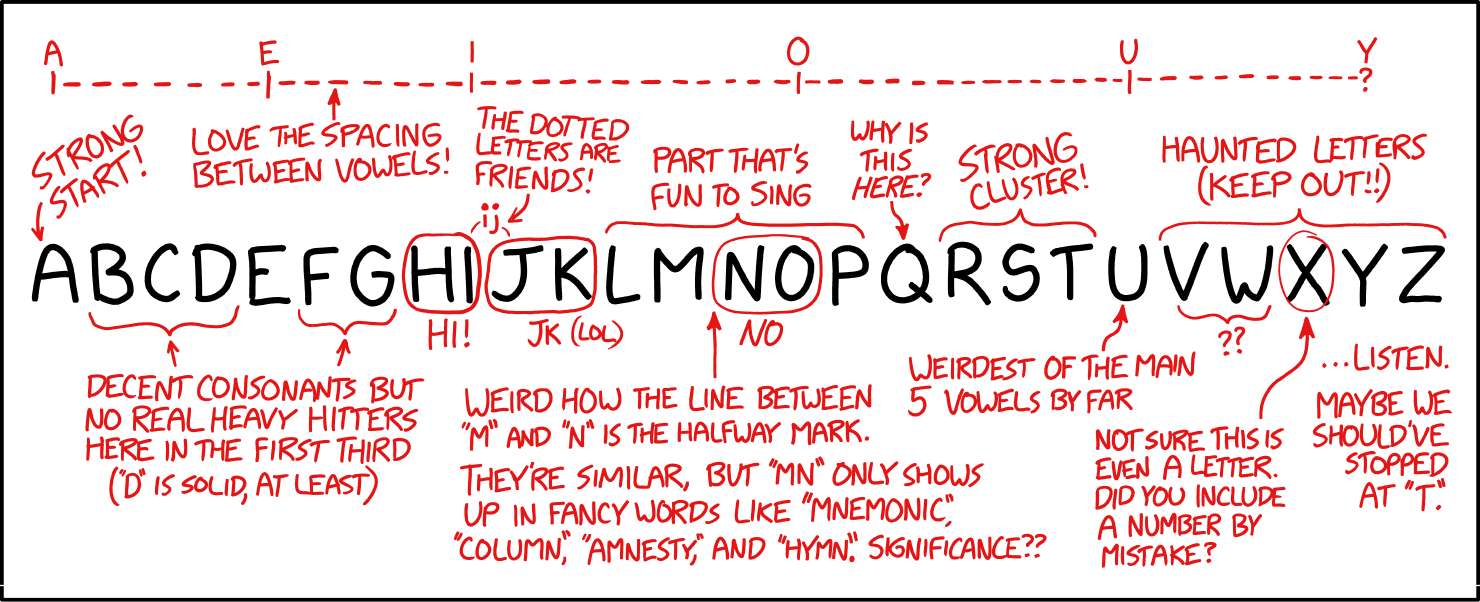 A E I O U Y
?
STRONG
START!
LOVE THE SPACING
BETWEEN VOWELS!
THE DOTTED
LETTERS ARE
FRIENDS!
ij
PART THAT'S
FUN TO SING
WHY IS
THIS
HERE?
STRONG
CLUSTER!
HAUNTED LETTERS
(KEEP OUT!!)
ABCDEFGHIJKLMNOPQRSTUVWXYZ
HI!
JK (LOL)
NO
??
DECENT CONSONANTS BUT
NO REAL HEAVY HITTERS
HERE IN THE FIRST THIRD
("D" IS SOLID, AT LEAST)
WEIRD HOW THE LINE BETWEEN
"M" AND "N" IS THE HALFWAY MARK.
THEY'RE SIMILAR, BUT "MN" ONLY SHOWS
UP IN FANCY WORDS LIKE "MNEMONIC",
"COLUMN," "AMNESTY," AND "HYMN". SIGNIFICANCE??
WEIRDEST OF THE MAIN
5 VOWELS BY FAR
NOT SURE THIS IS
EVEN A LETTER.
DID YOU INCLUDE
A NUMBER BY
MISTAKE?
...LISTEN.
MAYBE WE
SHOULD'VE
STOPPED
AT "T."